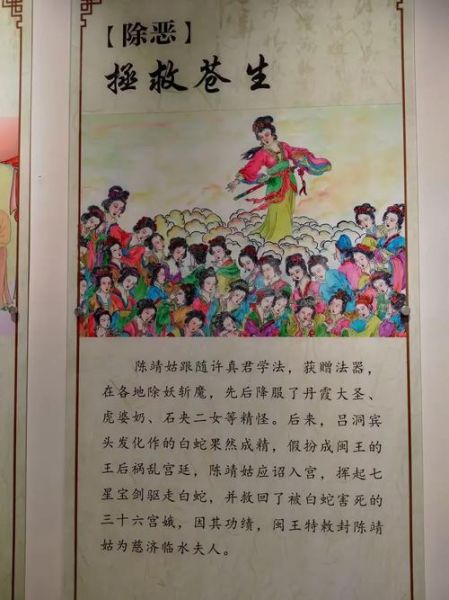 【除恶】
拯救苍生
陈靖姑跟随许真君学法，获赠法器，
在各地除妖斩魔，先后降服了丹霞大圣、
虎婆奶、石夹二女等精怪。后来，吕洞宾
头发化作的白蛇果然成精，假扮成闽王的
王后祸乱宫廷，陈靖姑应诏入宫，挥起七
星宝剑驱走白蛇，并救回了被白蛇害死的
三十六宫娥，因其功绩，闽王特敕封陈靖
姑为慈济临水夫人。